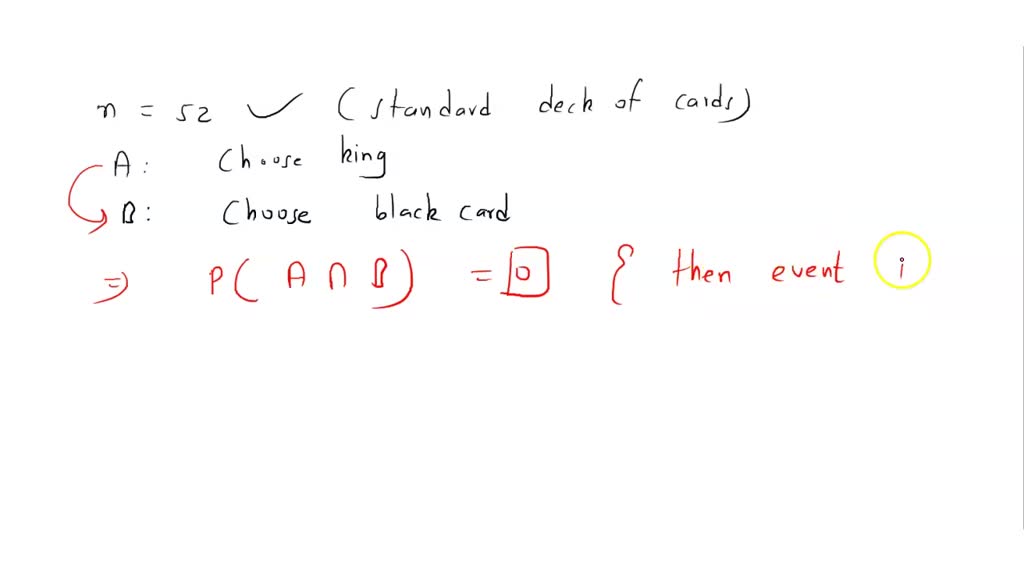 n = 52 ✓ (standard deck of cards)
A: Choose king
B: Choose black card
⇒ P(A ∩ B) = 0 { then event i